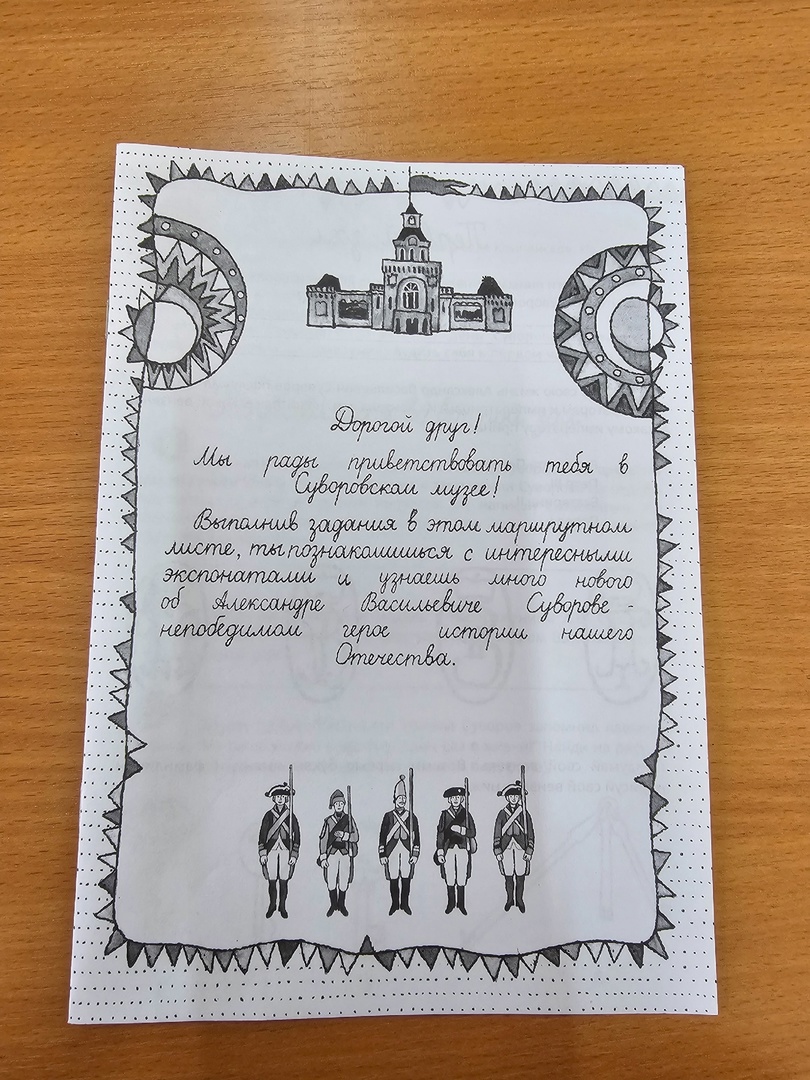 Дорогой друг!
Мы рады приветствовать тебя в
Суворовском музее!
Выполнив задания в этом маршрутном
листе, ты познакомишься с интересными
экспонатами и узнаешь много нового
об Александре Васильевиче Суворове -
непобедимом герое истории нашего
Отечества.